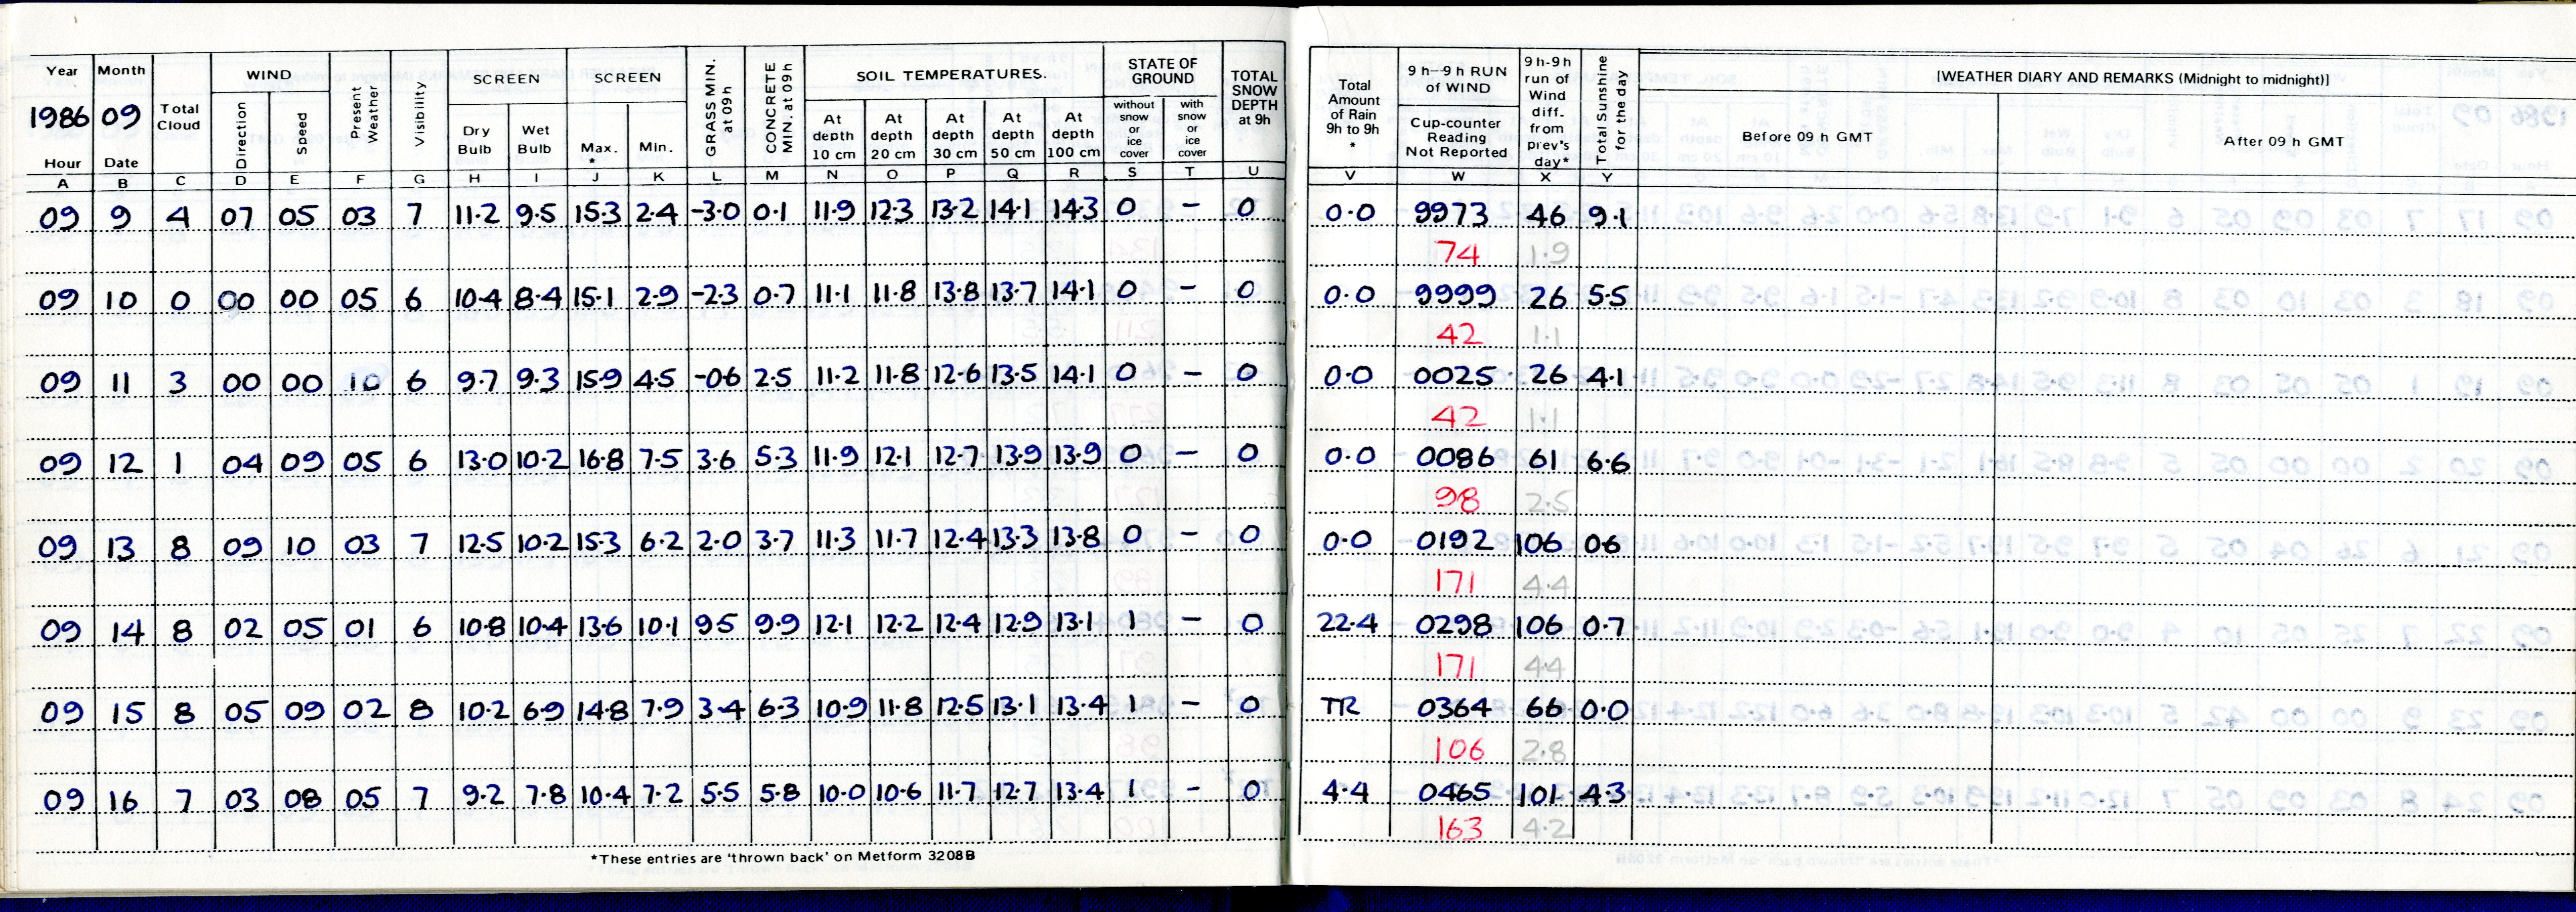 Year Month WIND SCREEN SCREEN SOIL TEMPERATURES. STATE OF GROUND
1986 09 Total Cloud Direction Speed Present Weather Visibility Dry Bulb Wet Bulb Max. * Min. GRASS MIN. at 09h CONCRETE MIN. at 09h At depth 10 cm At depth 20 cm At depth 30 cm At depth 50 cm At depth 100 cm without snow or ice cover with snow or ice cover TOTAL SNOW DEPTH at 9h Total Amount of Rain 9h to 9h * 9h–9h RUN of WIND Cup-counter Reading Not Reported 9h-9h run of Wind diff. from prev's day* Total Sunshine for the day [WEATHER DIARY AND REMARKS (Midnight to midnight)]
Hour Date Before 09 h GMT After 09 h GMT
A B C D E F G H I J K L M N O P Q R S T U V W X Y
09 9 4 07 05 03 7 11.2 9.5 15.3 2.4 -3.0 0.1 11.9 12.3 13.2 14.1 14.3 0 – 0 0.0 9973 46 9.1
74 1.9
09 10 0 00 00 05 6 10.4 8.4 15.1 2.9 -2.3 0.7 11.1 11.8 13.8 13.7 14.1 0 – 0 0.0 9999 26 5.5
42 1.1
09 11 3 00 00 10 6 9.7 9.3 15.9 4.5 -0.6 2.5 11.2 11.8 12.6 13.5 14.1 0 – 0 0.0 0025 26 4.1
42 1.1
09 12 1 04 09 05 6 13.0 10.2 16.8 7.5 3.6 5.3 11.9 12.1 12.7 13.9 13.9 0 – 0 0.0 0086 61 6.6
98 2.5
09 13 8 09 10 03 7 12.5 10.2 15.3 6.2 2.0 3.7 11.3 11.7 12.4 13.3 13.8 0 – 0 0.0 0192 106 0.6
171 4.4
09 14 8 02 05 01 6 10.8 10.4 13.6 10.1 9.5 9.9 12.1 12.2 12.4 12.9 13.1 1 – 0 22.4 0298 106 0.7
171 4.4
09 15 8 05 09 02 8 10.2 6.9 14.8 7.9 3.4 6.3 10.9 11.8 12.5 13.1 13.4 1 – 0 TR 0364 66 0.0
106 2.8
09 16 7 03 08 05 7 9.2 7.8 10.4 7.2 5.5 5.8 10.0 10.6 11.7 12.7 13.4 1 – 0 4.4 0465 101 4.3
163 4.2
*These entries are 'thrown back' on Metform 3208B